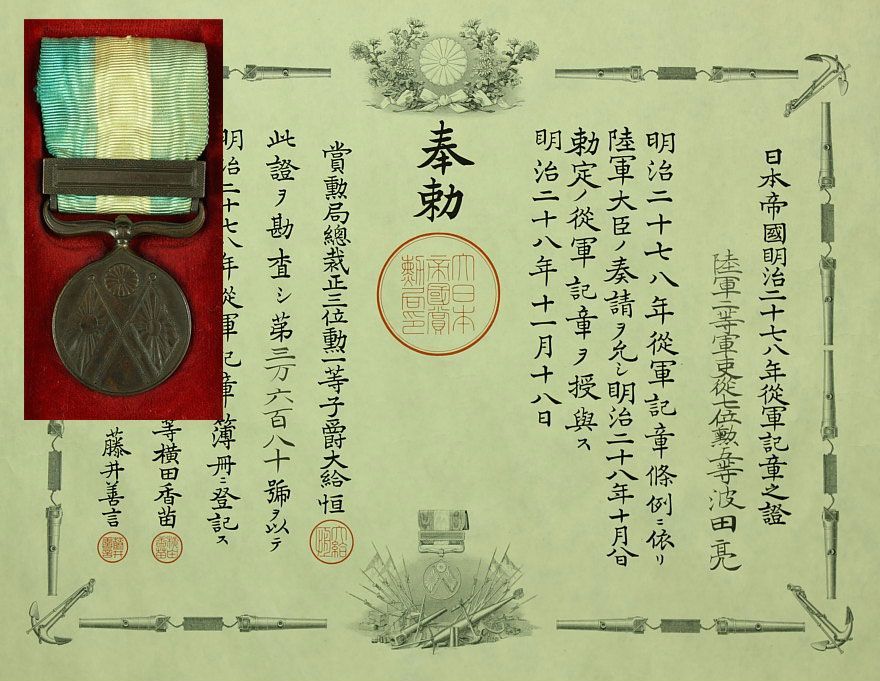 日本帝國明治二十七八年從軍記章之證
陸軍二等軍吏從七位勲五等波田亮
明治二十七八年從軍記章條例ニ依リ
陸軍大臣ノ奏請ヲ允シ明治二十八年十月八日
勅定ノ從軍記章ヲ授與ス
明治二十八年十一月十八日
奉勅
大日本
帝國賞
勲局印
賞勲局總裁正三位勲一等子爵大給恒
此證ヲ勘査シ第三万六百八十號ヲ以テ
明治二十七八年從軍記章簿冊ニ登記ス
等横田香苗
藤井善言